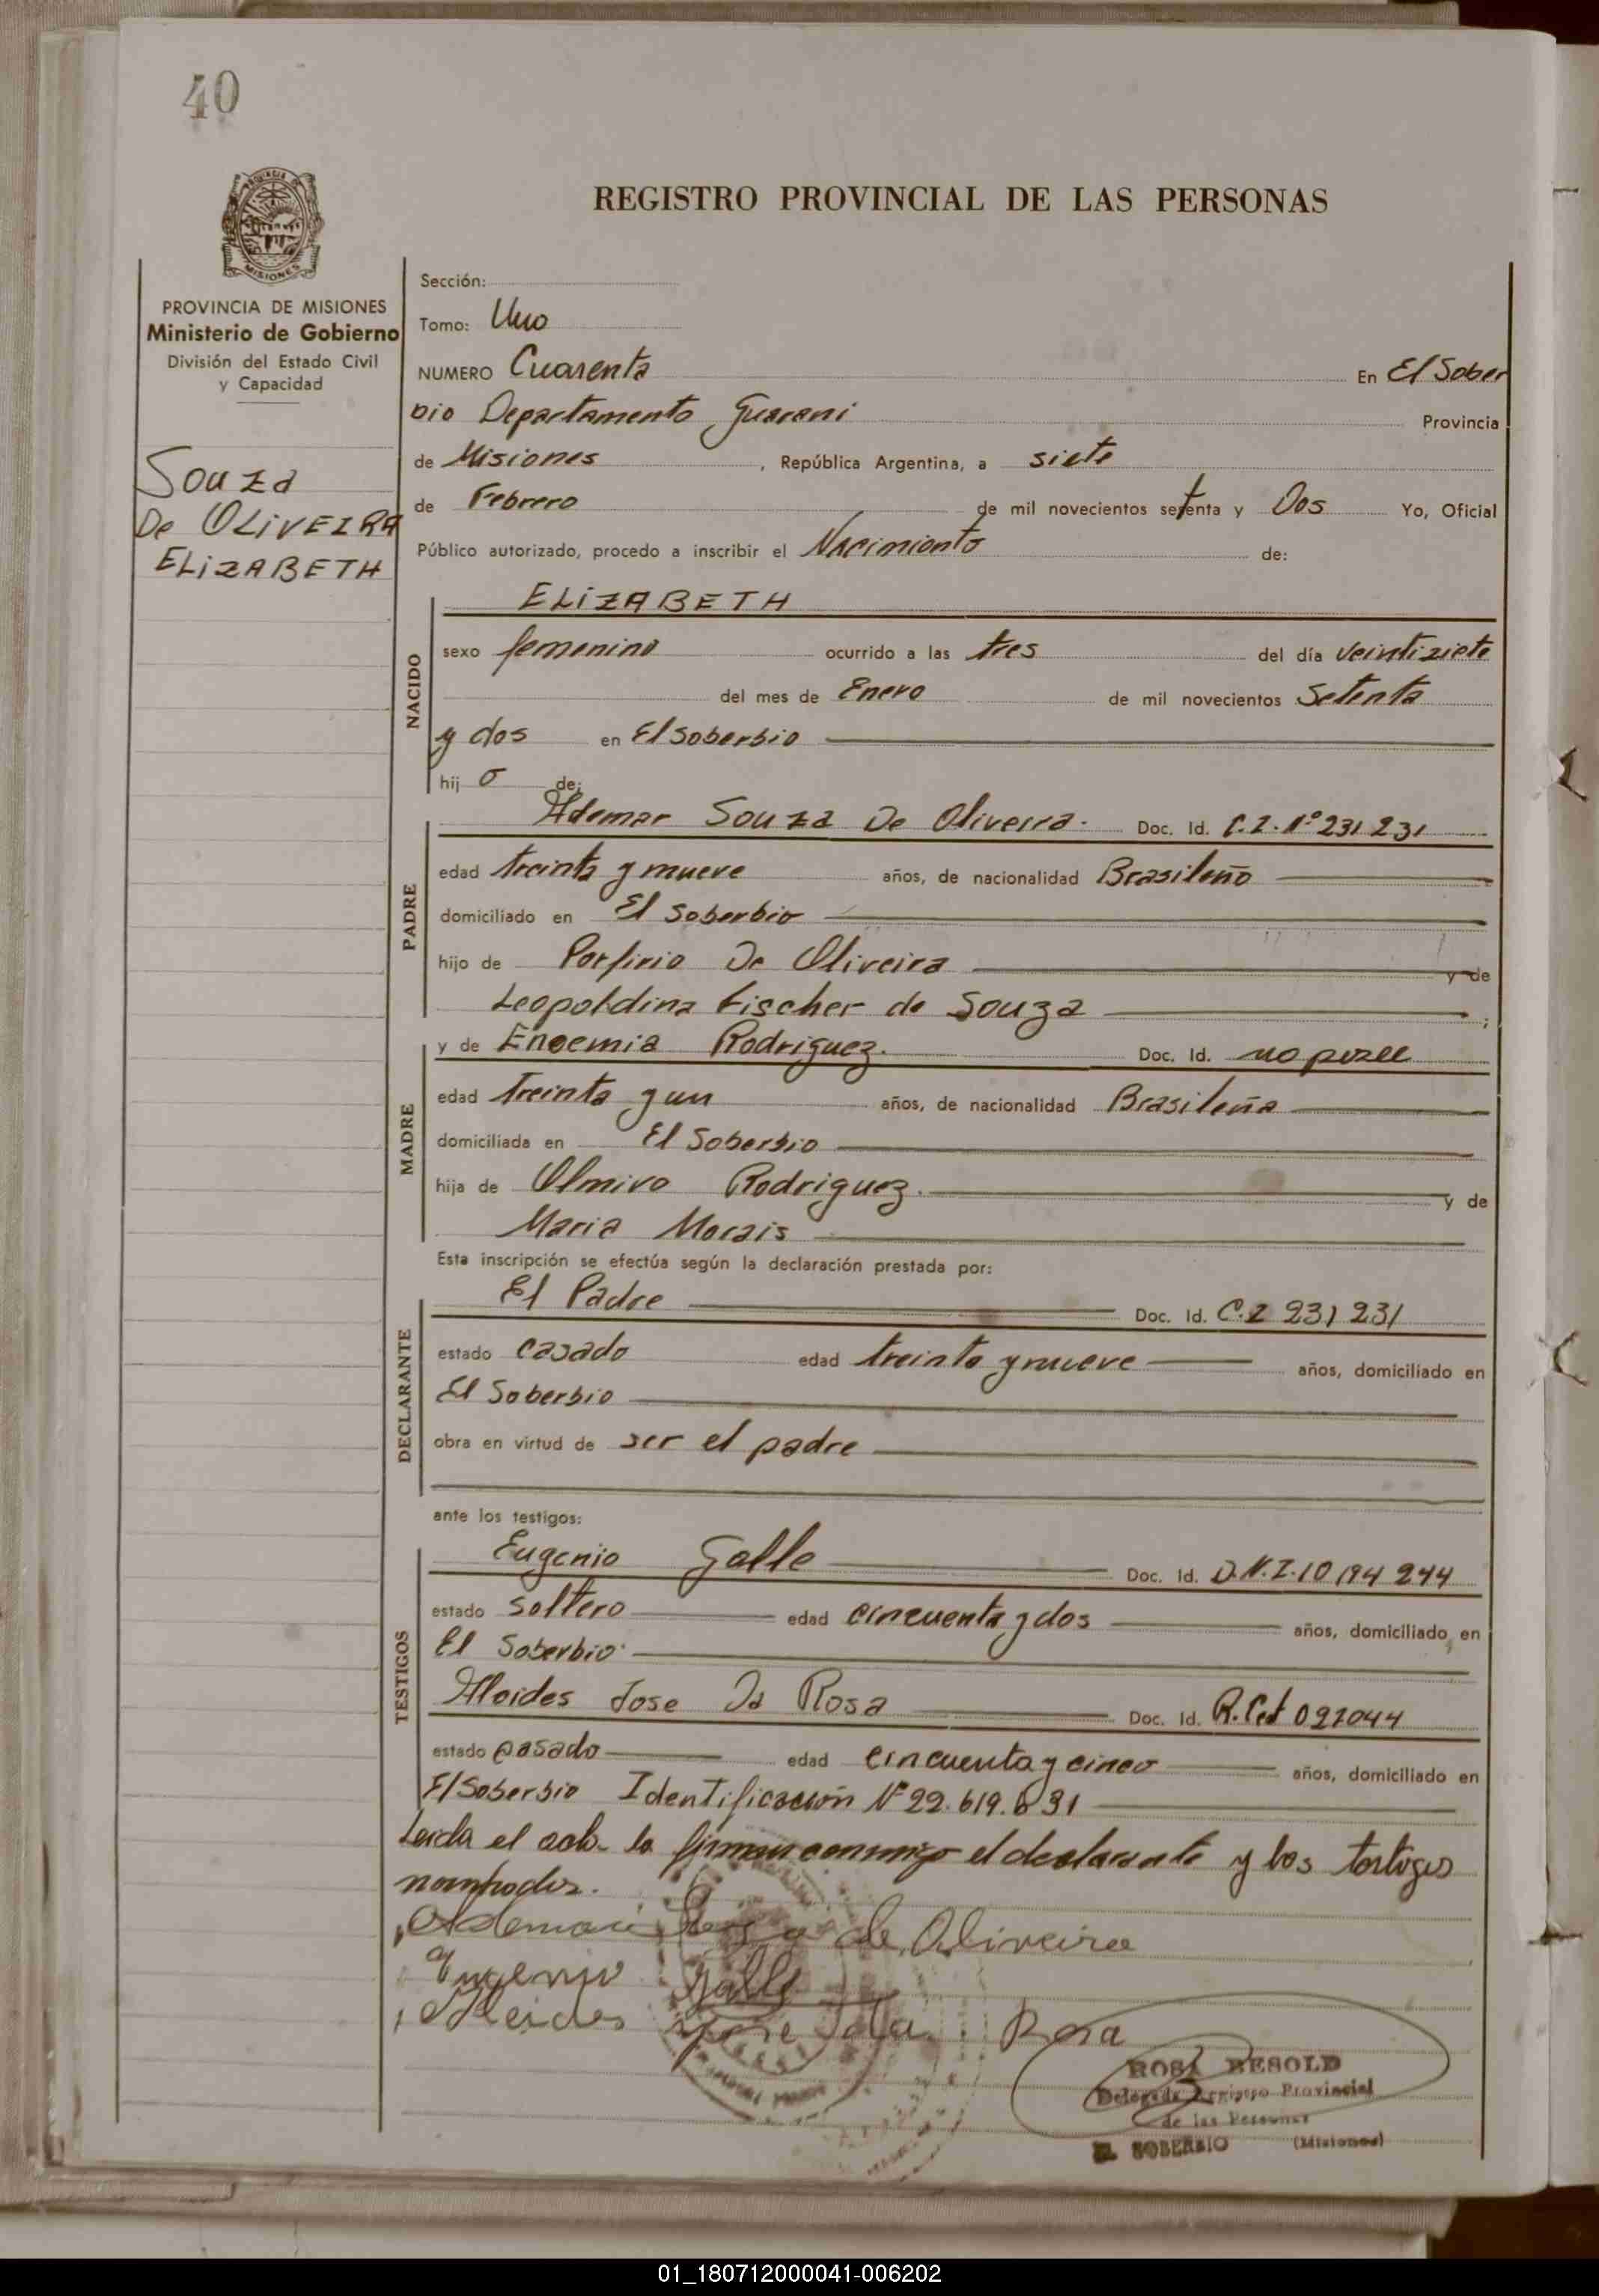 40
REGISTRO PROVINCIAL DE LAS PERSONAS
MISIONES
PROVINCIA DE MISIONES
Ministerio de Gobierno
División del Estado Civil
y Capacidad
Souza
De OLiVEIRA
ELiZABETH
Sección:
Tomo: Uno
NUMERO Cuarenta En El Sober
bio Departamento Guarani Provincia
de Misiones, República Argentina, a siete
de Febrero de mil novecientos setenta y Dos Yo, Oficial
Público autorizado, procedo a inscribir el Nacimiento de:
NACIDO
ELiZABETH
sexo femenino ocurrido a las tres del día veintisiete
del mes de Enero de mil novecientos Setenta
y dos en El Soberbio
hij o de:
PADRE
Ademar Souza De Oliveira. Doc. Id. C.I. Nº 231231
edad treinta y nueve años, de nacionalidad Brasileño
domiciliado en El Soberbio
hijo de Porfirio De Oliveira y de
Leopoldina Fischer de Souza ;
MADRE
y de Enoemia Rodriguez. Doc. Id. no posee
edad treinta y un años, de nacionalidad Brasileña
domiciliada en El Soberbio
hija de Olmiro Rodriguez. y de
Maria Morais
Esta inscripción se efectúa según la declaración prestada por:
DECLARANTE
El Padre Doc. Id. C.I 231231
estado casado edad treinta y nueve años, domiciliado en
El Soberbio
obra en virtud de ser el padre
ante los testigos:
TESTIGOS
Eugenio Galle Doc. Id. D.N.I.10194244
estado soltero edad cincuenta y dos años, domiciliado en
El Soberbio
Alcides Jose Da Rosa Doc. Id. R.Cet 092044
estado casado edad cincuenta y cinco años, domiciliado en
El Soberbio Identificación Nº 22.619.631
Leida el acta la firman conmigo el declarante y los testigos
nombrados.
Ademar Souza de Oliveira
Eugenio Galle
Alcides Jose Da Rosa
ROSA BESOLD
Delegada Registro Provincial
de las Personas
EL SOBERBIO (Misiones)
01_180712000041-006202